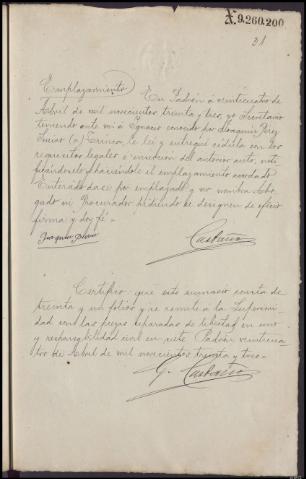 X.9.260.200
31
Emplazamiento En Padrón á veinticuatro de
Abril de mil novecientos treinta y tres, yo Secretario
teniendo ante mi á Ignacio conocido por Joaquín Pérez
(a) le lei y entregué cédula con los
requisitos legales é inserción del anterior auto, noti
ficándoselo y haciéndole el emplazamiento acordado
Enterado dáse por emplazado y no nombra Abo
gado ni Procurador pidiendo se designen de oficio
firma y doy fé.
Castaño
Certifico: que este sumario consta de
treinta y un folios y se remite a la Superiori
dad con las piezas separadas de libertad en uno
y responsabilidad civil en siete Padrón veinticua
tro de Abril de mil novecientos treinta y tres.
G. Castaño